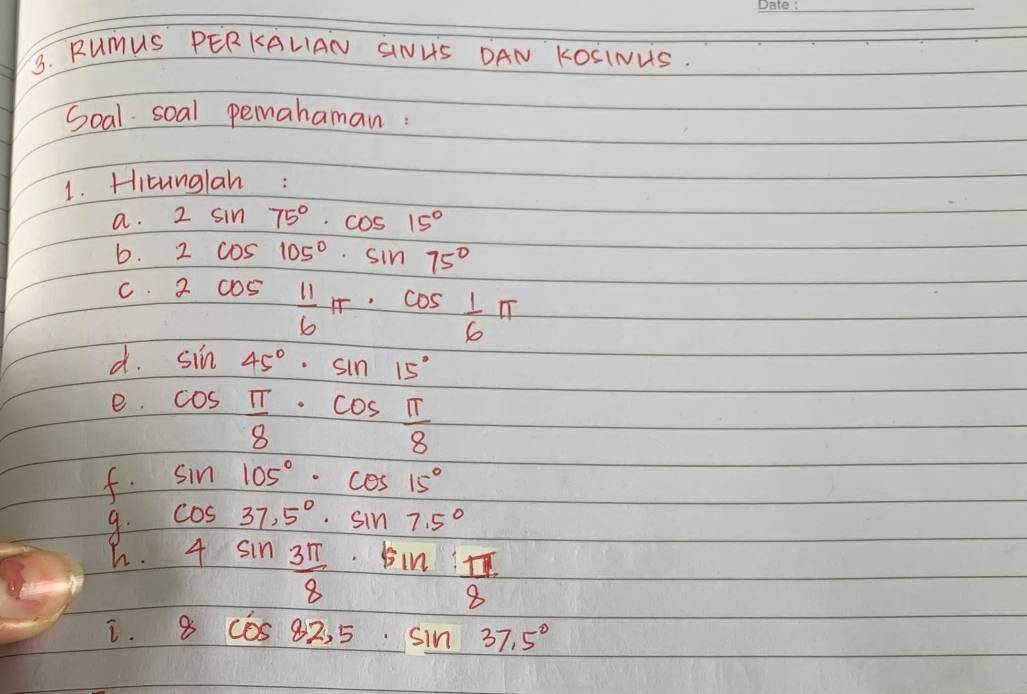 Date :
3. RUMUS PERKALIAN SINUS DAN KOSINUS.
Soal-soal pemahaman :
1. Hitunglah :
a. 2 sin 75° . cos 15°
b. 2 cos 105° . sin 75°
c. 2 cos 11/6 π . cos 1/6 π
d. sin 45° . sin 15°
e. cos π/8 . cos π/8
f. sin 105° . cos 15°
g. cos 37,5° . sin 7.5°
h. 4 sin 3π/8 . sin π/8
i. 8 cos 82,5 . sin 37,5°